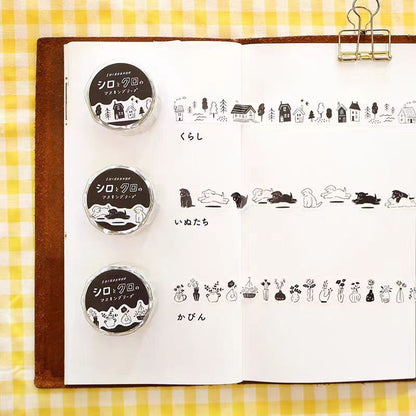 シロとクロの
マスキングテープ
くらし
シロとクロの
マスキングテープ
いぬたち
シロとクロの
マスキングテープ
かびん